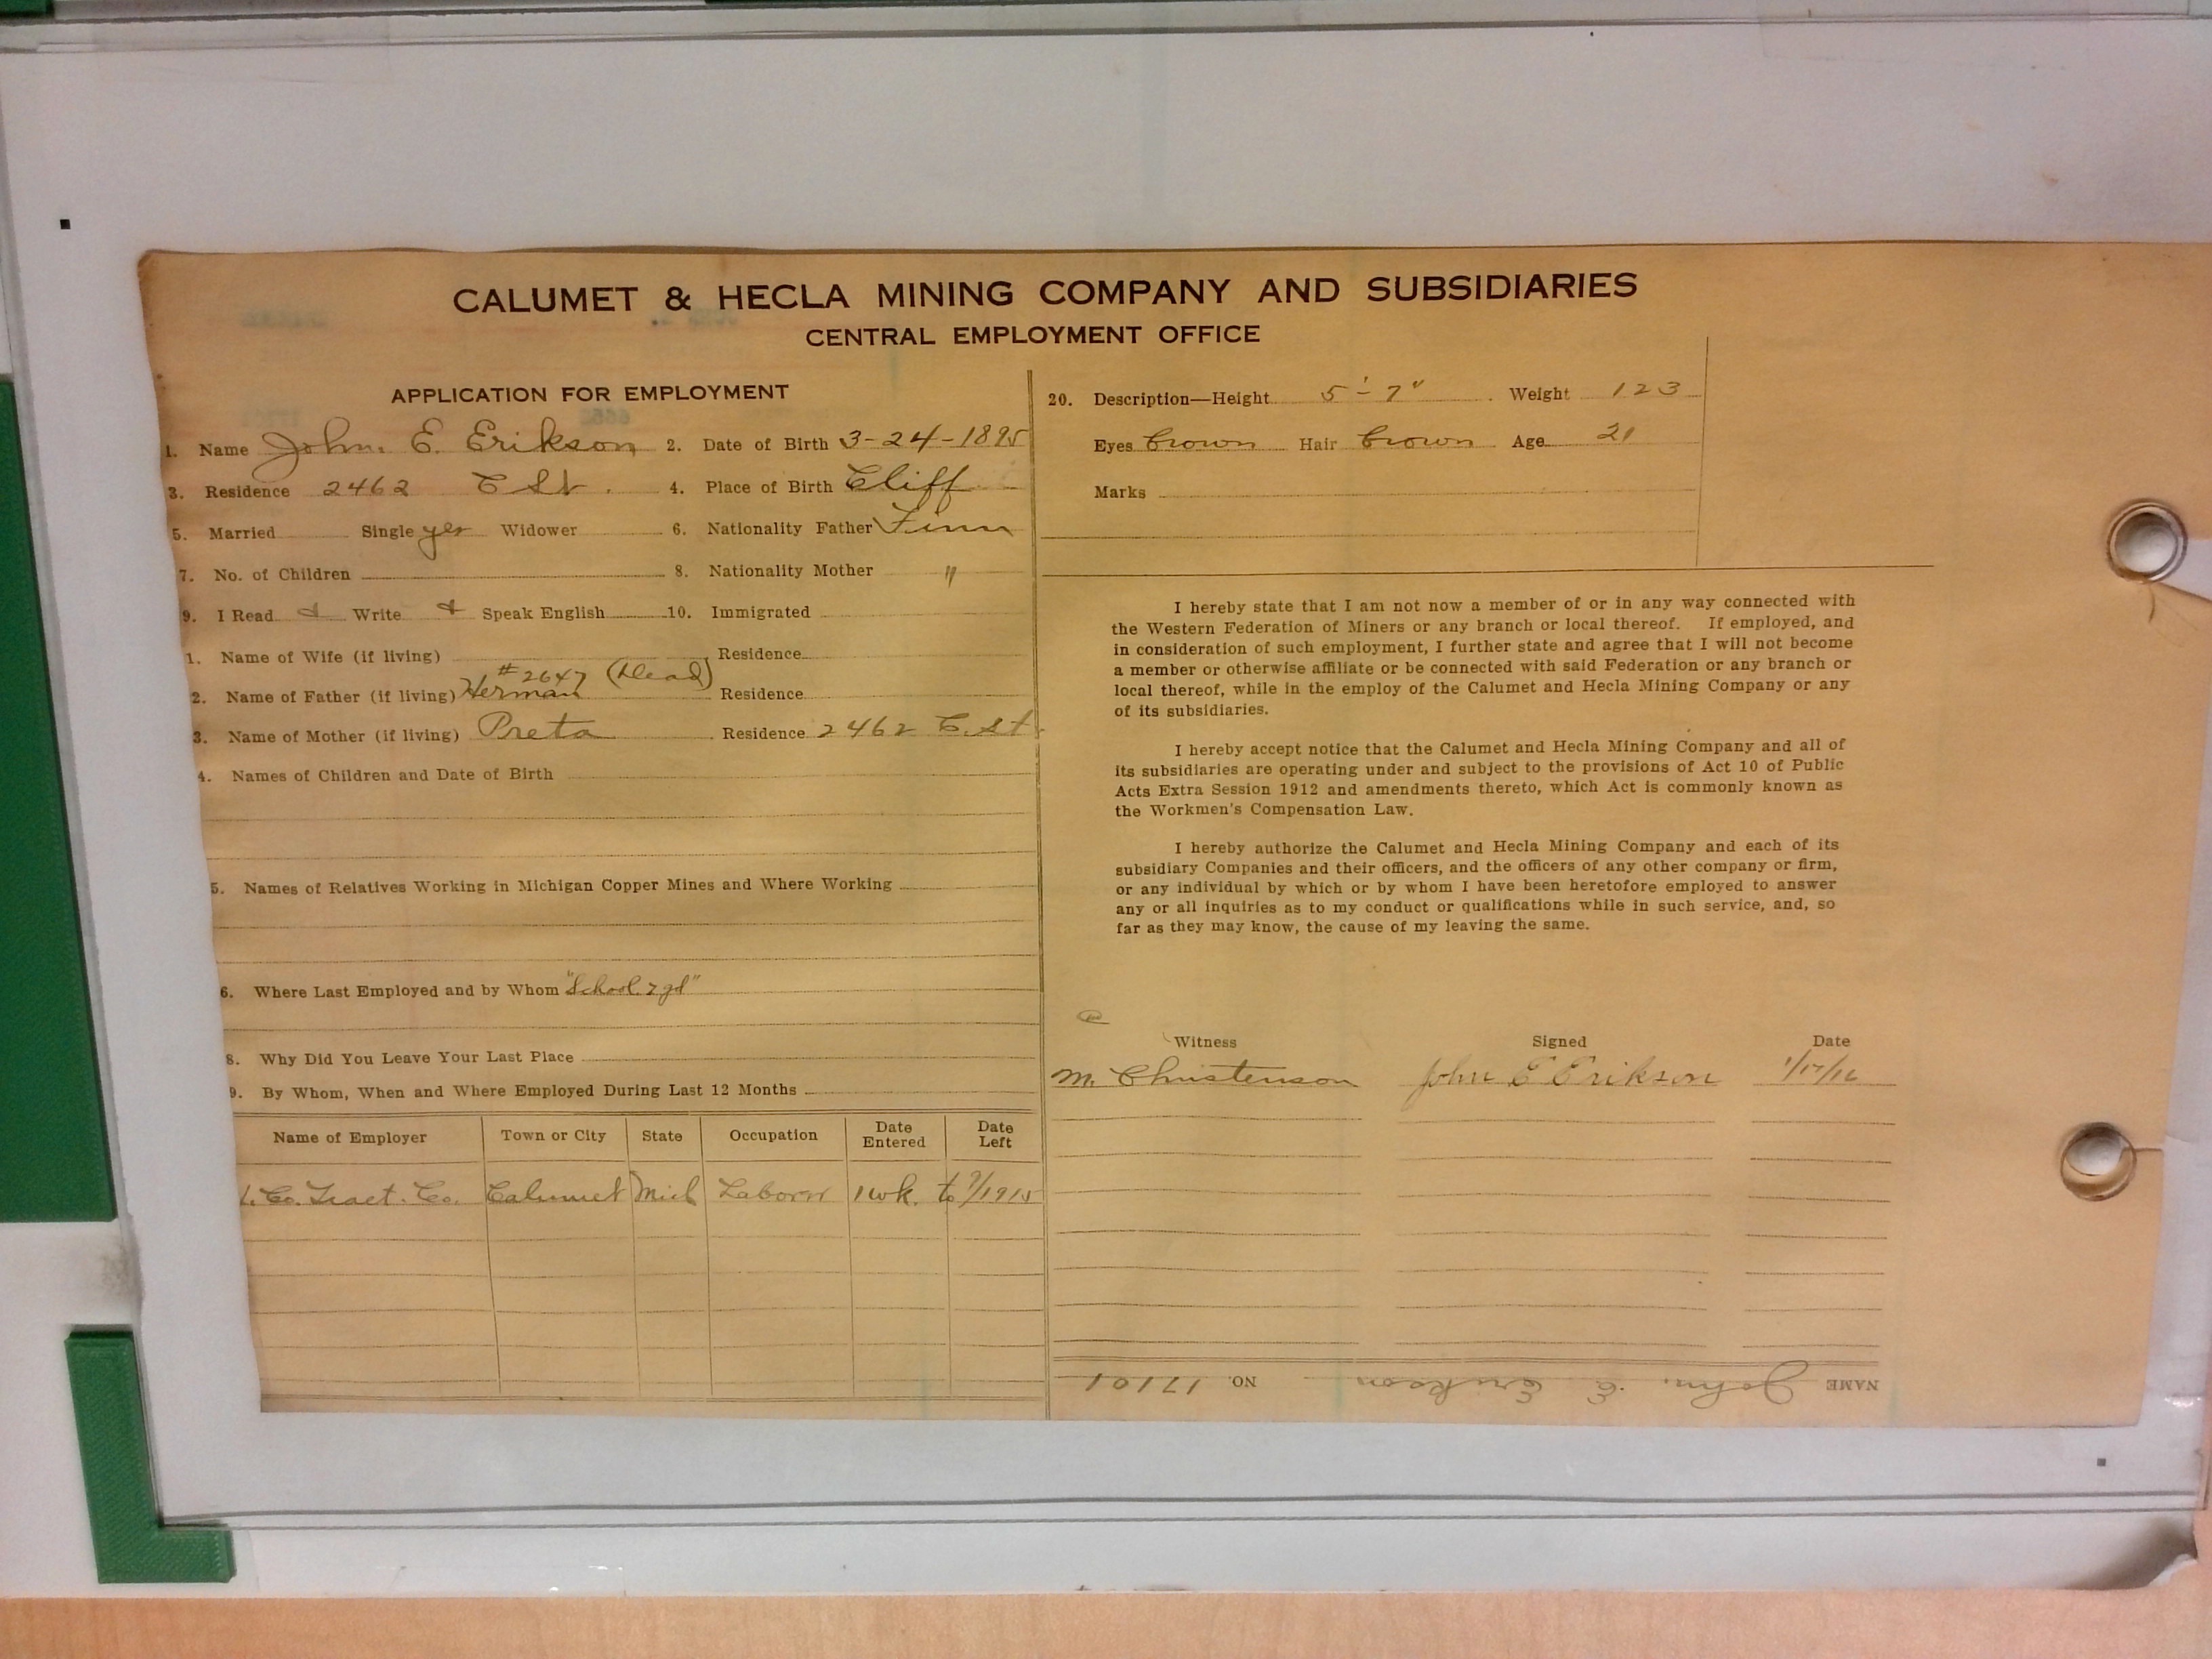 CALUMET & HECLA MINING COMPANY AND SUBSIDIARIES
CENTRAL EMPLOYMENT OFFICE
APPLICATION FOR EMPLOYMENT
1. Name John. E. Erikson 2. Date of Birth 3-24-1895
3. Residence 2462 C St. 4. Place of Birth Cliff
5. Married Single yes Widower 6. Nationality Father Finn
7. No. of Children 8. Nationality Mother "
9. I Read & Write & Speak English 10. Immigrated
1. Name of Wife (if living) Residence
#2647 (Dead)
2. Name of Father (if living) Herman Residence
3. Name of Mother (if living) Preta Residence 2462 C. St
4. Names of Children and Date of Birth
5. Names of Relatives Working in Michigan Copper Mines and Where Working
6. Where Last Employed and by Whom "School
8. Why Did You Leave Your Last Place
9. By Whom, When and Where Employed During Last 12 Months
Name of Employer Town or City State Occupation Date Entered Date Left
Co. Tract. Co. Calumet Mich Laborer 1 wk. to 1915
20. Description—Height 5'-7" Weight 123
Eyes brown Hair brown Age 21
Marks
I hereby state that I am not now a member of or in any way connected with
the Western Federation of Miners or any branch or local thereof. If employed, and
in consideration of such employment, I further state and agree that I will not become
a member or otherwise affiliate or be connected with said Federation or any branch or
local thereof, while in the employ of the Calumet and Hecla Mining Company or any
of its subsidiaries.
I hereby accept notice that the Calumet and Hecla Mining Company and all of
its subsidiaries are operating under and subject to the provisions of Act 10 of Public
Acts Extra Session 1912 and amendments thereto, which Act is commonly known as
the Workmen's Compensation Law.
I hereby authorize the Calumet and Hecla Mining Company and each of its
subsidiary Companies and their officers, and the officers of any other company or firm,
or any individual by which or by whom I have been heretofore employed to answer
any or all inquiries as to my conduct or qualifications while in such service, and, so
far as they may know, the cause of my leaving the same.
Witness Signed Date
M. Christenson John E Erikson
NAME John. E. Erikson NO. 17101